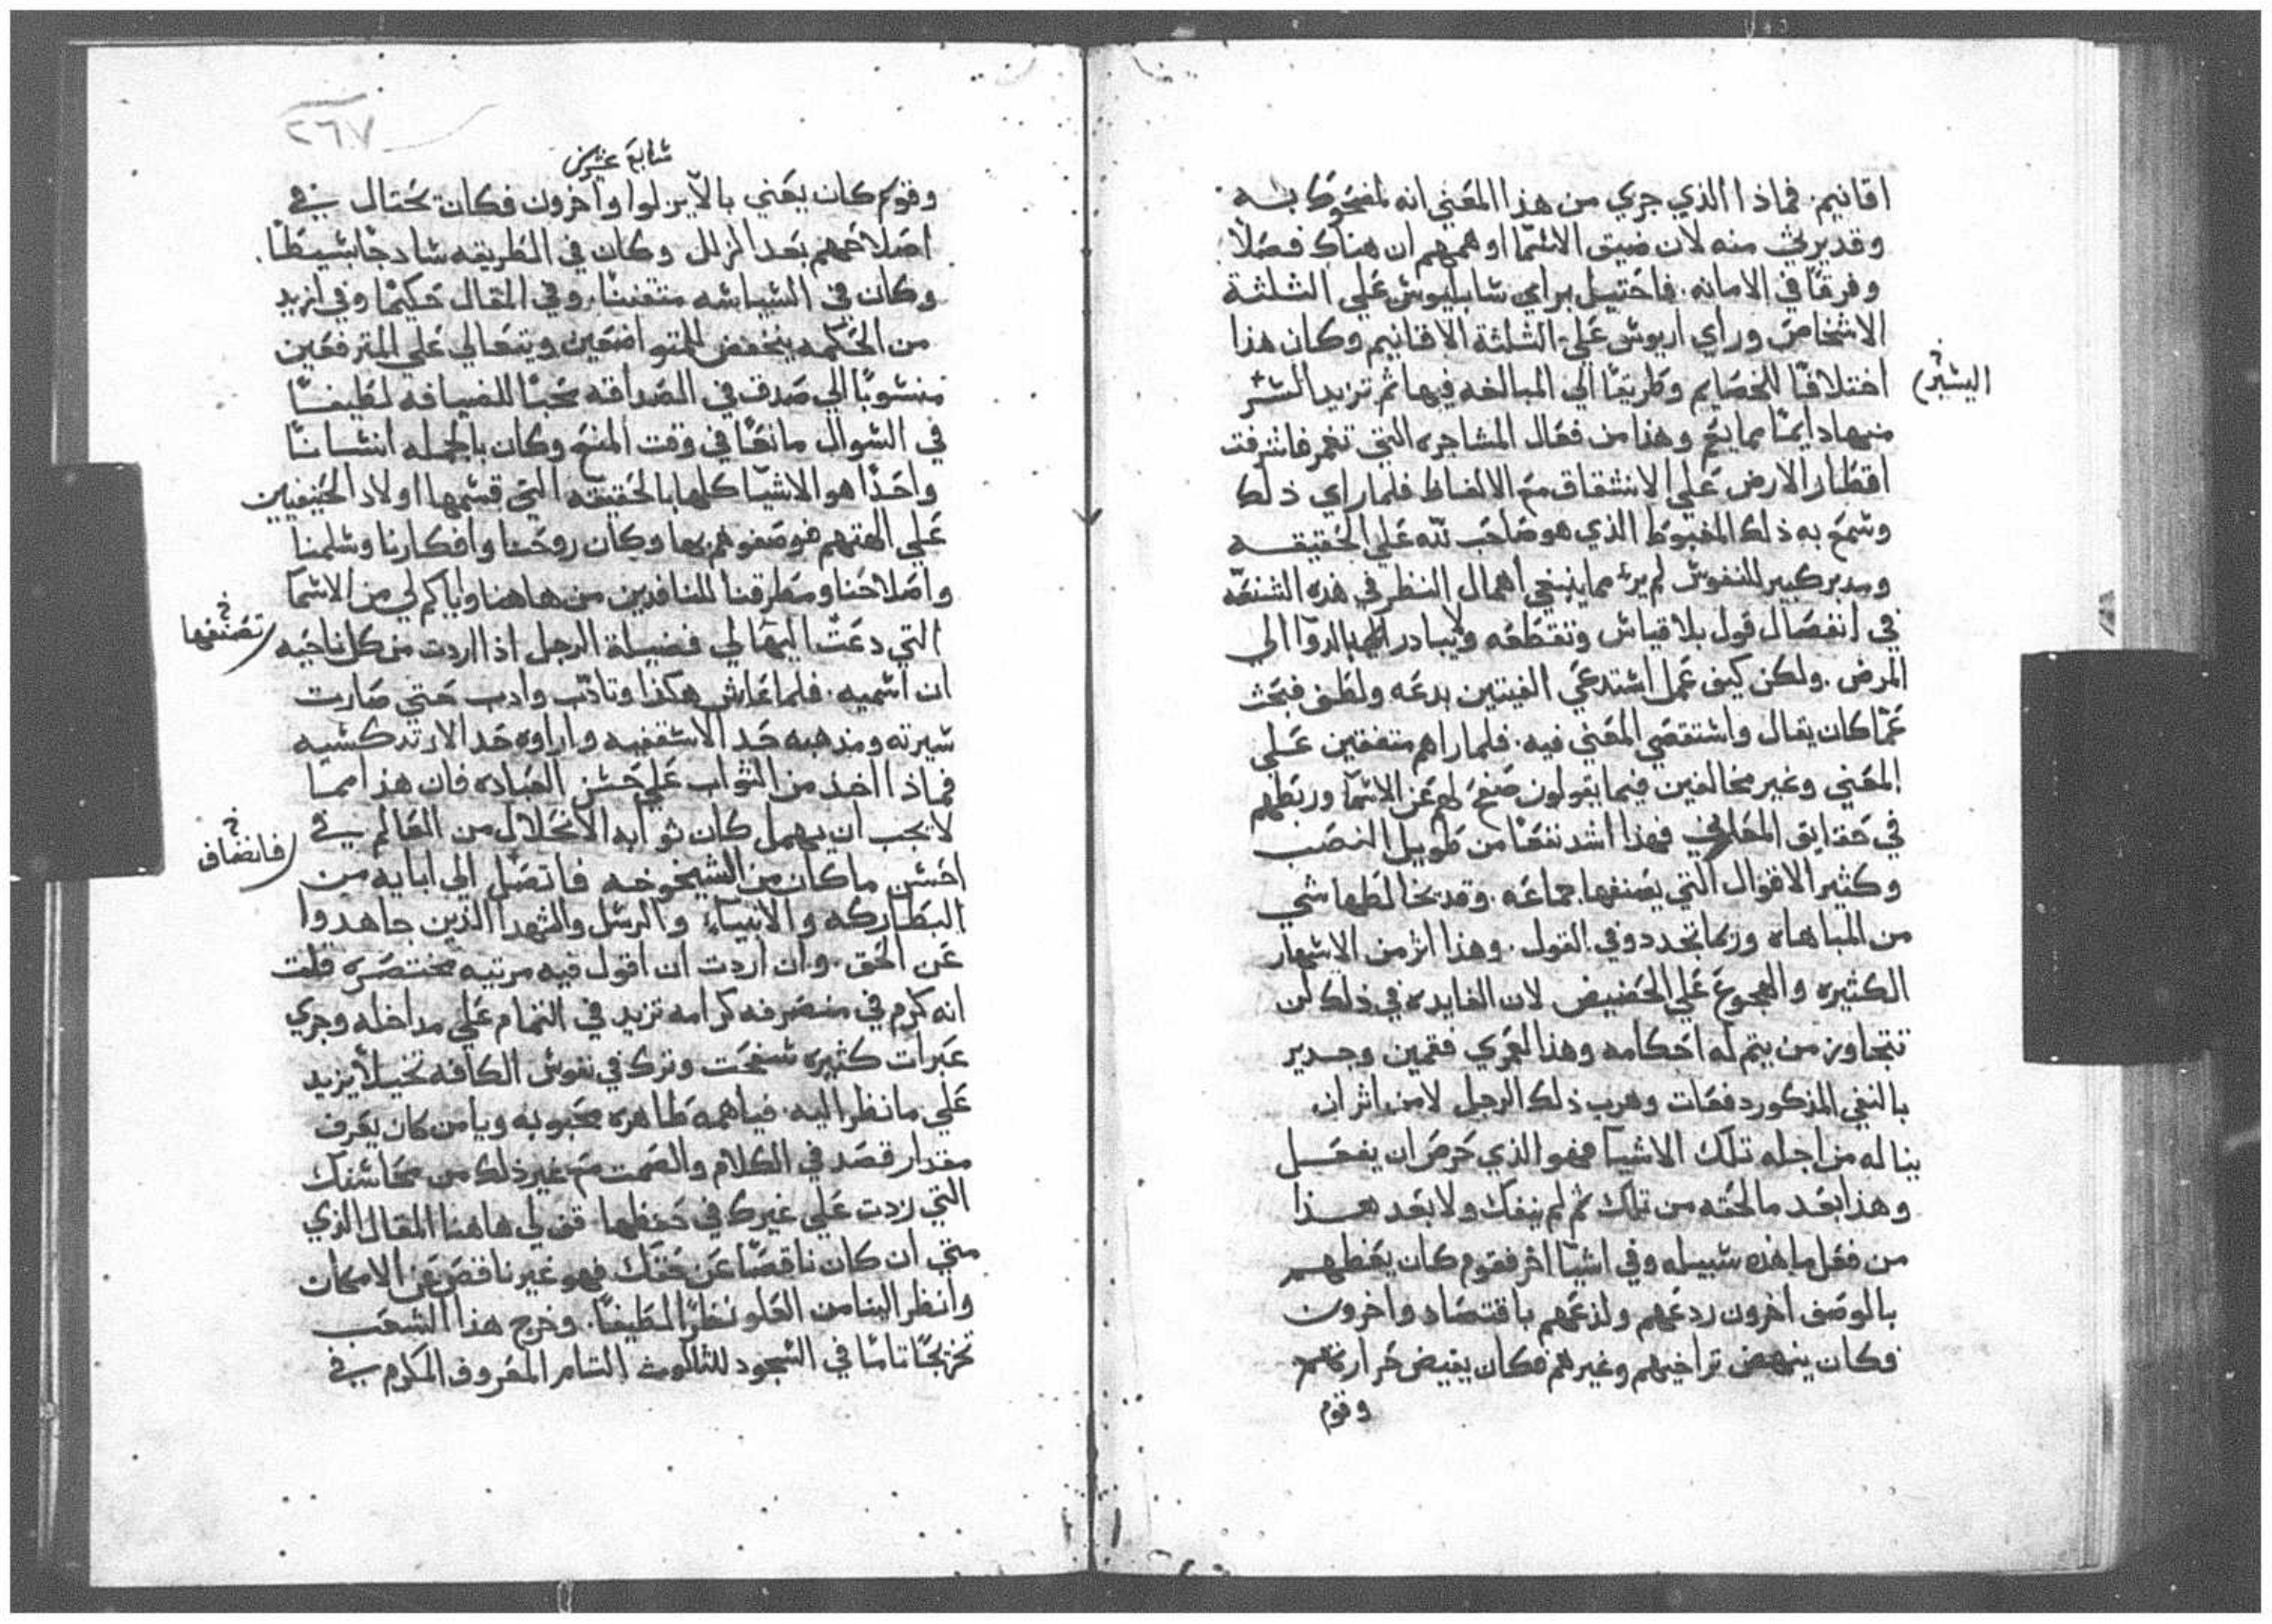 اقانيم. فماذا الذي جري من هذا المعني انه لمضحوك به
وقد يرثي منه لان ضيق الاسما اوهمهم ان هناك فصلاً
وفرقاً في الامانه. فاحتيل براي سابليوس علي الثلثة
الاشخاص وراي اريوس علي الثلثة الاقانيم وكان هذا
اختلاقاً للخصايم وطريقاً الي المبالغه فيها ثم تزيد الشر
اليسير
منها دايمًا مما يقع وهذا من فعال المشاجره التي تغمر فاشرفت
اقطار الارض علي الانشقاق مع الالفاظ فلما راي ذلك
وسمع به ذلك المغبوط الذي هو صاحب لله علي الحقيقه
ومدبر كبير للنفوس لم ير مما ينبغي اهمال النظر في هذه الشنعه
في انفصال قول بلا قياس وتقطعه ولا يبادر بالدوا الي
المرض. ولكن كيف عمل استدعي الفيتين بدعه ولطف فبحث
عما كان يقال واستقصي المعني فيه. فلما راهم متفقين علي
المعني وغير مخالفين فيما يقولون صفح لهم عن الاسما وربطهم
في حقايق المعاني فهذا اشد نفعًا من طويل النصب
وكثير الاقوال التي يصنفها جماعه. وقد يخالطها شي
من المباهاه وربما تجددو في القول. وهذا اثر من الاسهار
الكثيره والهجوع علي الحضيض لان الفايده في ذلك لن
تتجاوز من يتم له احكامه وهذا لعمري فقمين وجدير
بالنفي المذكور دفعات وهرب ذلك الرجل لامن اثر ان
يناله من اجله تلك الاشيا فهو الذي حرص ان يفعل
وهذا بعد ما لحقه من تلك ثم لم ينفك ولا بعد هذا
من فعل ما هذه سبيله وفي اشيا اخر فقوم كان يعظهم
بالوصف اخرون ردعهم ولذعهم باقتصاد واخرون
فكان ينهض تراخيهم وغيرهم فكان يغيض حرارتهم
وقوم
٢٦٧
سابع عشرين
وقوم كان يعني بالا يزلوا واخرون فكان يحتال في
اصلاحهم بعد الزلل وكان في الطريقه سادجًا بسيطًا.
وكان في السياسه متفننًا. وفي المقال حكيمًا وفي ازيد
من الحكمه ينخفض للمتواضعين ويتعالي علي المترفعين
منسوبًا الي صدق في الصداقه محبًا للضيافه لطيفًا
في السوال مانعًا في وقت المنع وكان بالجمله انسانًا
واحدًا هو الاشيا كلها بالحقيقه التي قسمها اولاد الحنيفيين
علي الهتهم فوصفوهم بها وكان روحنا وافكارنا وسلمنا
واصلاحنا ومطرقنا للنافدين من هاهنا وياكم لي من الاسما
التي دعت اليها لي فضيلة الرجل اذا اردت من كل ناحيه
تصنفها
ان اسميه. فلما عاش هكذا وتادب وادب حتي صارت
سيرته ومذهبه حد الاسقفيه واراوه حد الارتدكسيه
فماذا اخذ من الثواب علي حسن العباده فان هذا مما
لا يجب ان يهمل كان ثوابه الانحلال من العالم في
احسن ما كان من الشيخوخه فاتصل الي ابايه من
فانضاف
البطاركه والانبياء والرسل والشهدا الذين جاهدوا
عن الحق. وان اردت ان اقول فيه مرتيه مختصره قلت
انه كرم في منصرفه كرامه تزيد في التمام علي مداخله وجري
عبرات كثيره سفحت وترك في نفوس الكافه تخيلاً يزيد
علي ما نظر اليه. فيا همه طاهره محبوبه ويا من كان يعرف
مقدار قصد في الكلام والصمت مع غير ذلك من محاسنك
التي زدت علي غيرك في حفظها قف لي هاهنا المقال الذي
متي ان كان ناقصًا عن حقك فهو غير ناقص عن الامكان
وانظر الينا من العلو نظرًا لطيفًا. وخرج هذا الشعب
تخريجًا تامًا في السجود للثالوث التام المعروف المكرم في